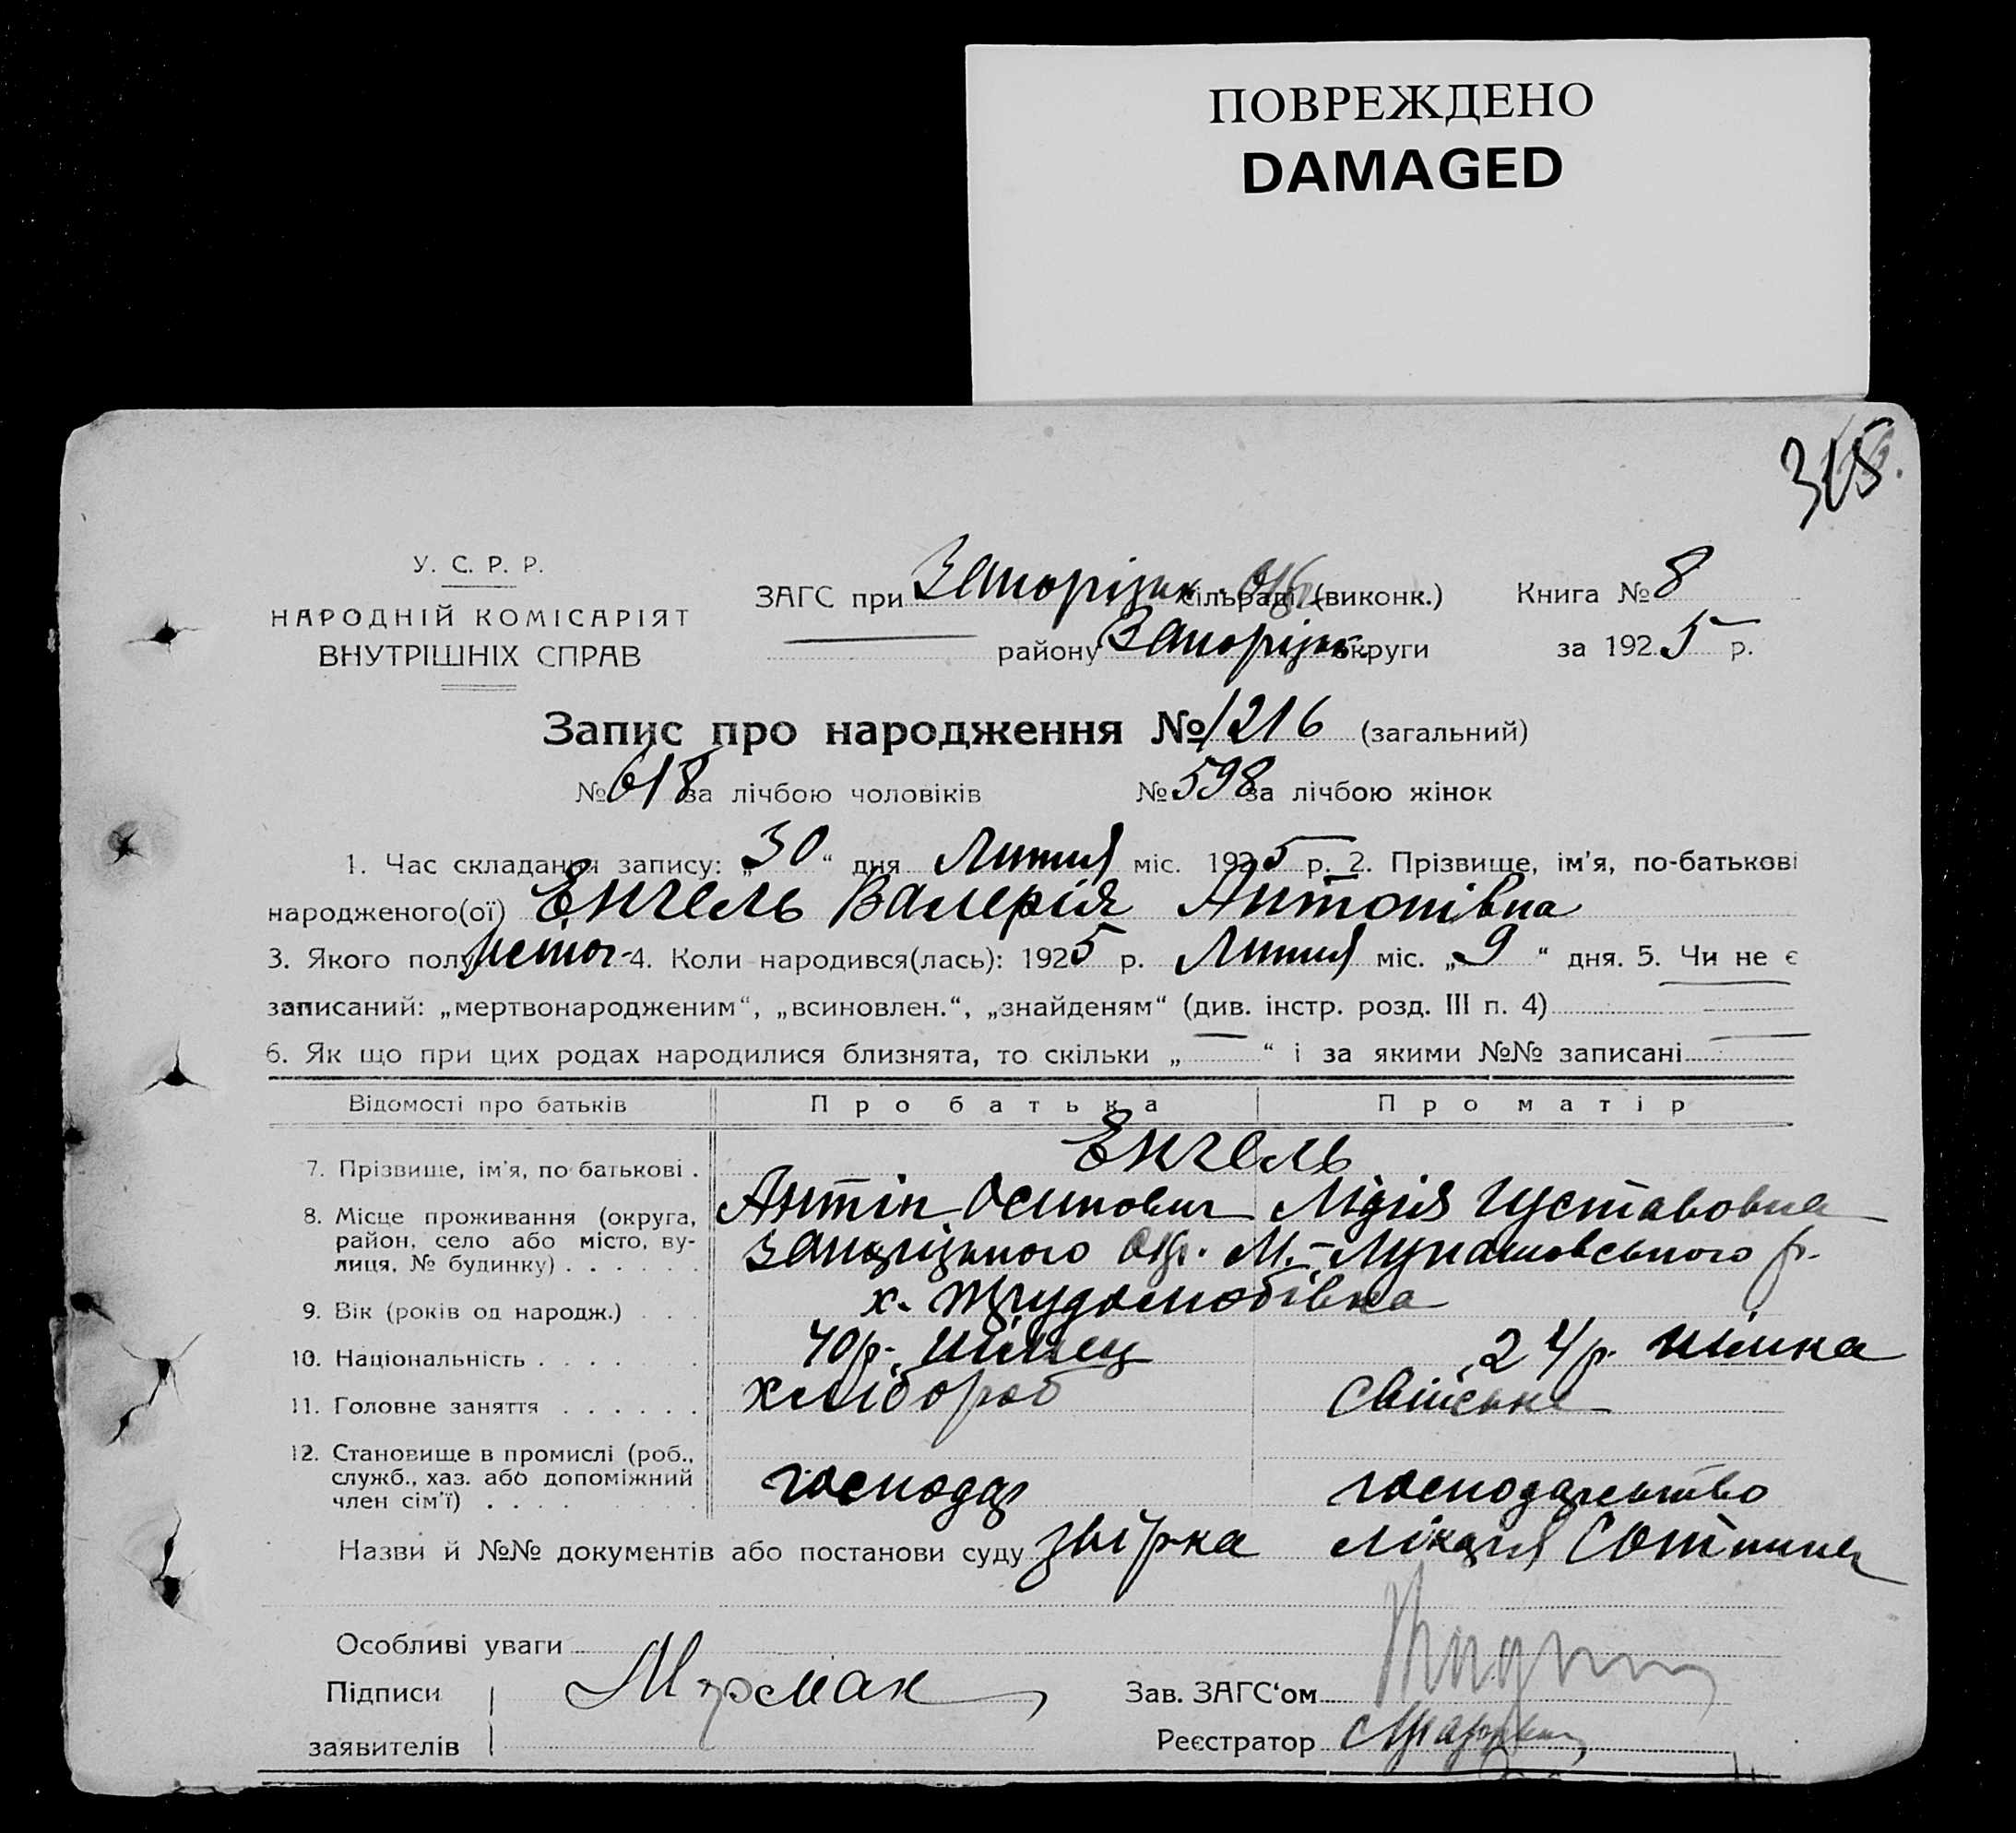 ПОВРЕЖДЕНО
DAMAGED
315.
У. С. Р. Р.
НАРОДНІЙ КОМІСАРІЯТ
ВНУТРІШНІХ СПРАВ
ЗАГС при Запорізьк. сільраді (виконк.) Книга № 8
району Запорізьк. округи за 1925 р.
Запис про народження № 1216 (загальний)
№ 618 за лічбою чоловіків № 598 за лічбою жінок
1. Час складання запису: „30“ дня Липня міс. 1925 р. 2. Прізвище, ім'я, по-батькові
народженого(ої) Енгель Валерія Антонівна
3. Якого полу 4. Коли народився(лась): 1925 р. Липня міс. „9“ дня. 5. Чи не є
записаний: „мертвонародженим“, „всиновлен.“, „знайденям“ (див. інстр. розд. III п. 4)
6. Як що при цих родах народилися близнята, то скільки „ “ і за якими №№ записані
Відомості про батьків Про батька Про матір
7. Прізвище, ім'я, по батькові . Енгель
8. Місце проживання (округа, Антін Осипович Лідія Густавовна
район, село або місто, ву-
лиця, № будинку) . . . . . . Запоріцького Окр. М.-Лукашовського р.
9. Вік (років од народж.) . . . х. Трудолюбівка
10. Національність . . . . . . 40 р. німец 24 р. німка
11. Головне заняття . . . . . . хлібороб свійське
12. Становище в промислі (роб.,
служб., хаз. або допоміжний
член сім'ї) . . . . господар господарьство
Назви й №№ документів або постанови суду
Особливі уваги
Підписи
Зав. ЗАГС‘ом
заявителів
Реєстратор